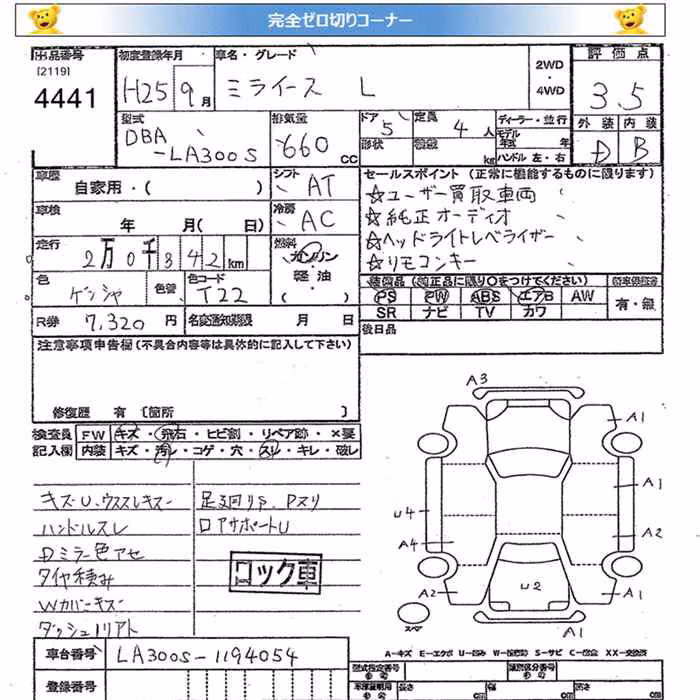 完全ゼロ切りコーナー
出品番号 初度登録年月 車名・グレード 2WD・4WD 評価点
[2119]
4441 H25 9月 ミライース L 3.5
型式 排気量 ドア 定員 ディーラー・並行 外装 内装
DBA-LA300S 660 cc 5 4人 モデル年式 年 D B
形状 積載 kg ハンドル 左・右
車歴 自家用・( ) シフト AT セールスポイント (正常に機能するものに限ります)
☆ユーザー買取車両
車検 年 月(日) 冷房 AC ☆純正オーディオ
☆ヘッドライトレベライザー
走行 2万0千342km 燃料 ガソリン・軽油 ☆リモコンキー
色 ゲンシャ 色替 色コード T22 装備品 (純正品に限り○をつけてください)
PS PW ABS エアB AW 有・無
SR ナビ TV カワ
R券 7,320円 名変通知期限 月 日 後日品
注意事項申告欄 (不具合内容等は具体的に記入して下さい)
修復歴 有 [箇所 ]
検査員 FW キズ・飛石・ヒビ割・リペア跡・×要
記入欄 内装 キズ・汚レ・コゲ・穴・スリ・キレ・破レ
キズU、ウススレキズー 足廻りS、Pスリ
ハンドルスレ ロアサポートU
Dミラー色アセ
タイヤ積み
Wカバーキズー
ダッシュ1リアト
ロック車
A3
A1
A1
U4
A4 A2
U2
A2 A1
スペア A1
A-キズ E-エクボ U-凹み W-補修跡 S-サビ C-腐食 XX-交換済
車台番号 LA300S-1194054
型式指定番号 類別区分番号
登録番号 長さ cm 幅 cm 高さ cm